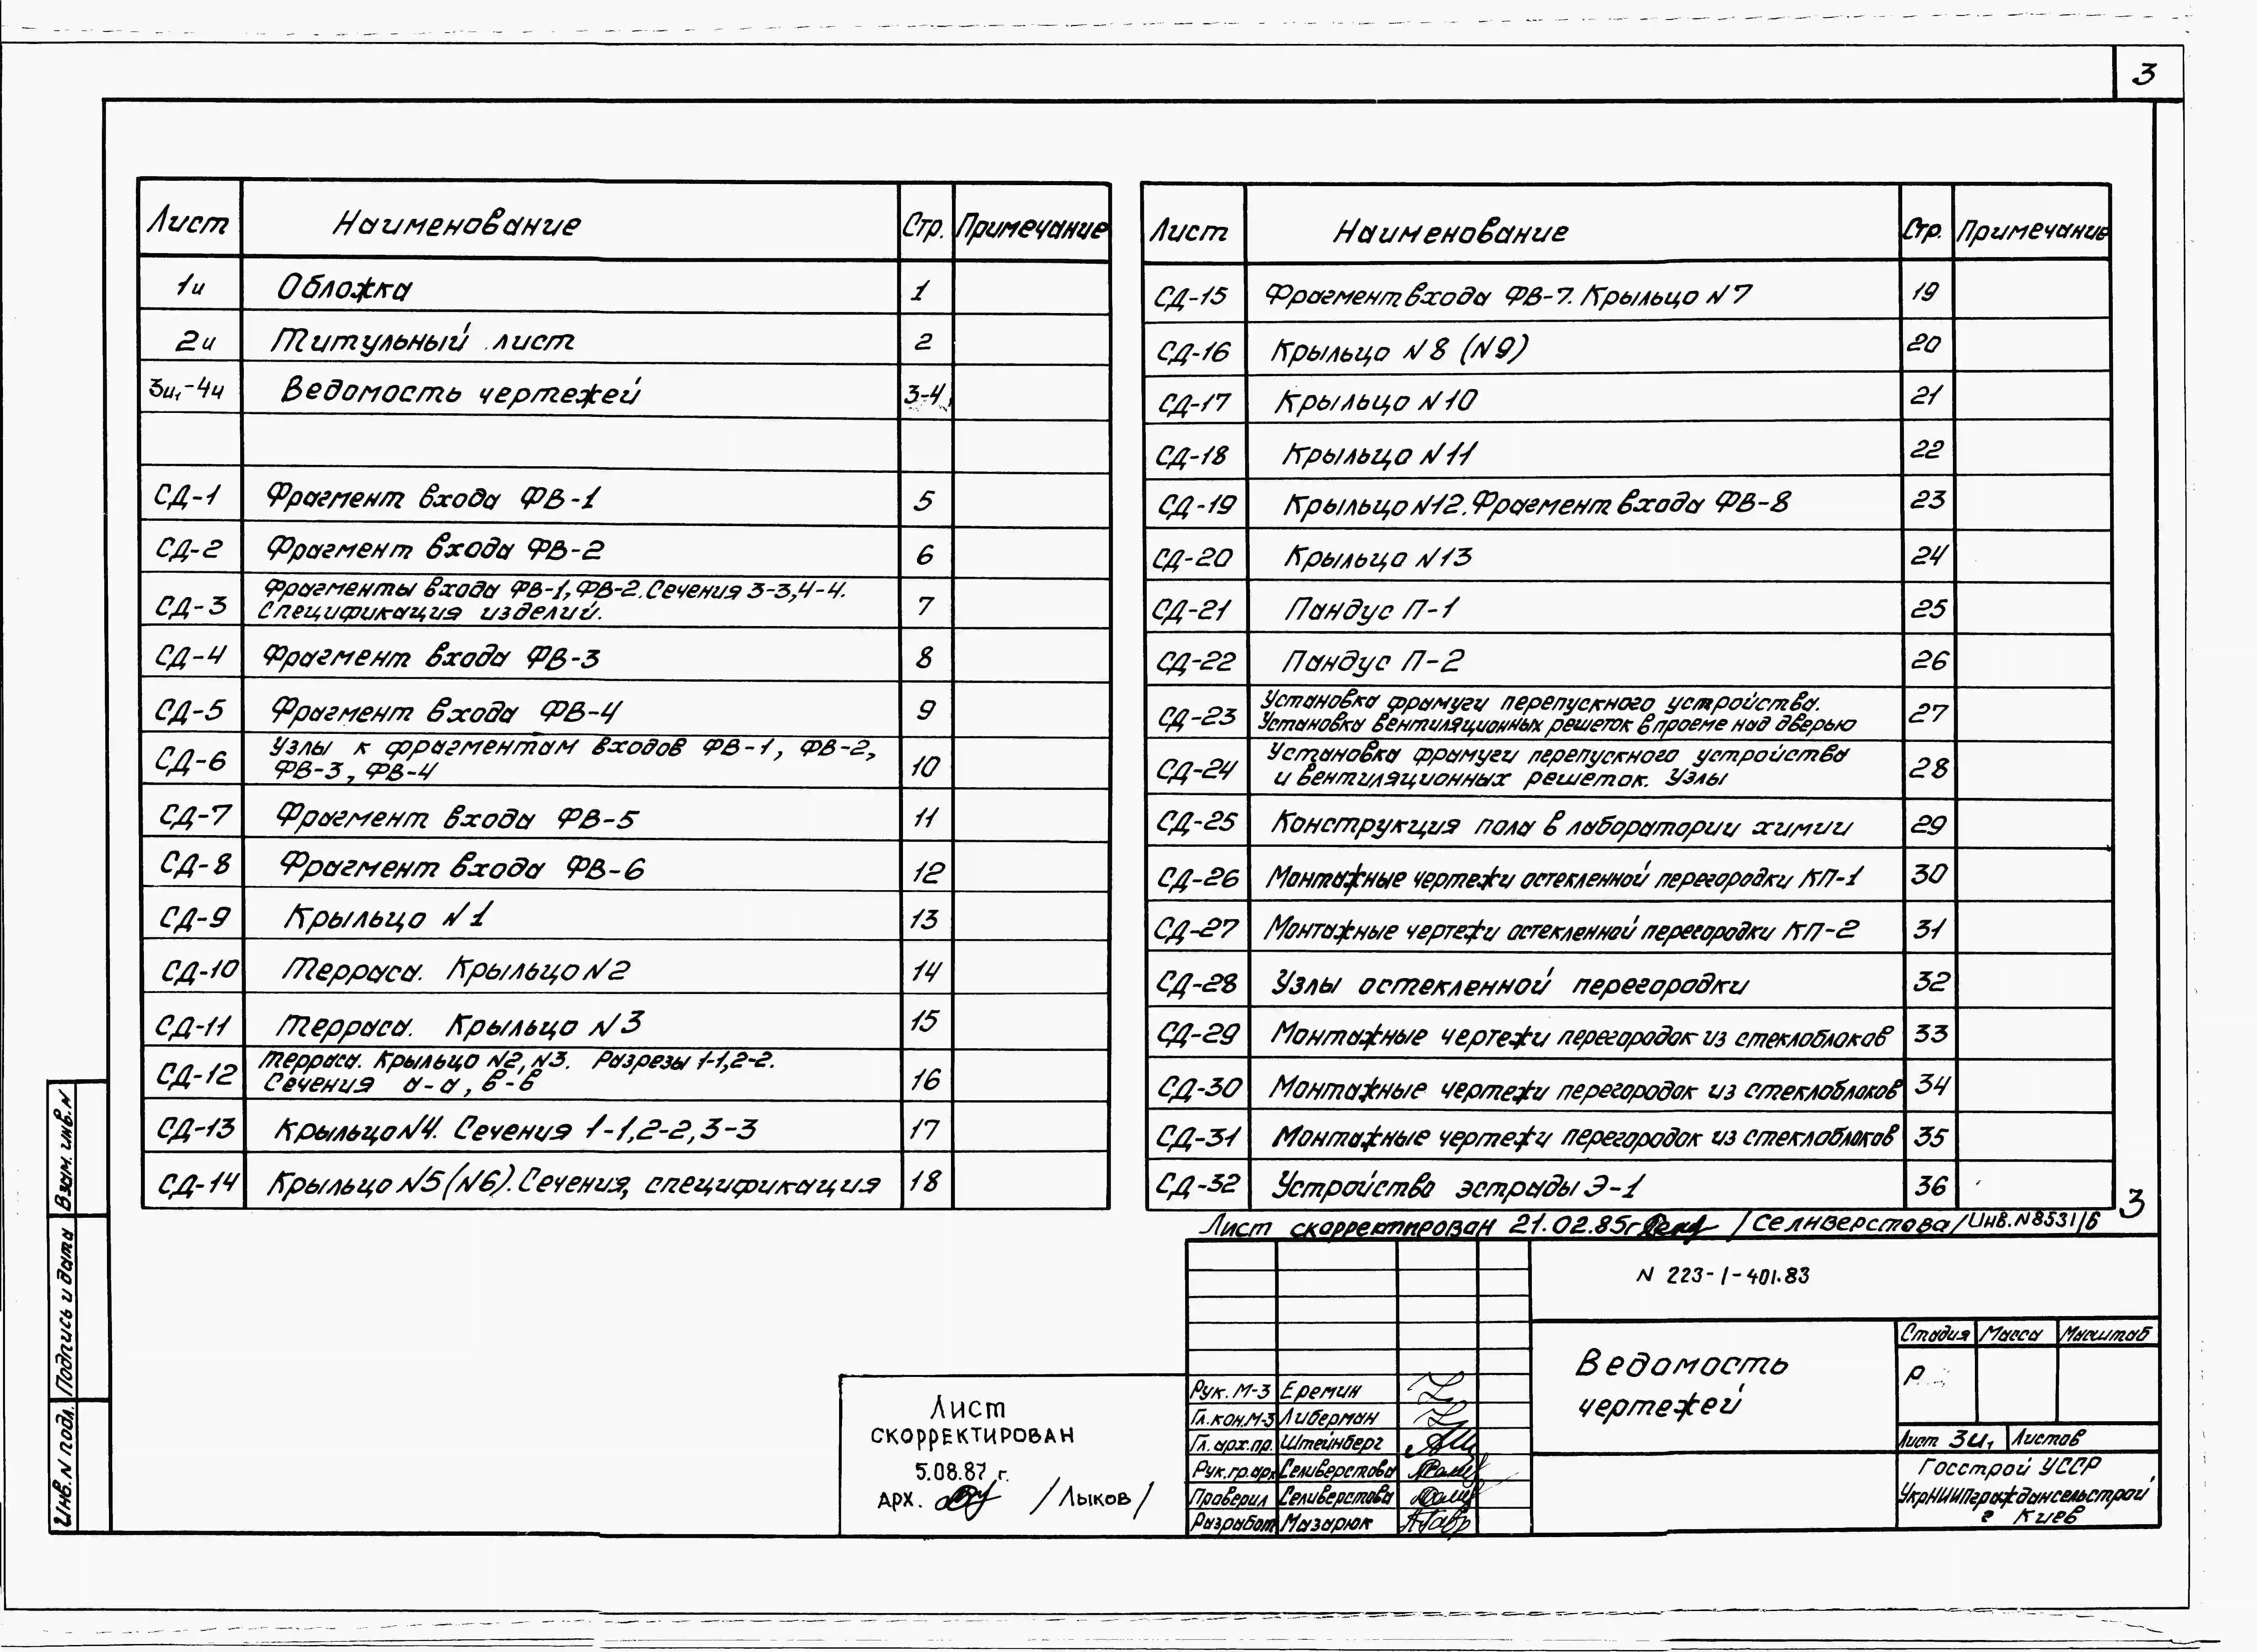 3
Лист Наименование Стр. Примечание
1и Обложка 1
2и Титульный лист 2
3и₁-4и Ведомость чертежей 3-4
СД-1 Фрагмент входа ФВ-1 5
СД-2 Фрагмент входа ФВ-2 6
СД-3 Фрагменты входа ФВ-1, ФВ-2. Сечения 3-3, 4-4.
Спецификация изделий. 7
СД-4 Фрагмент входа ФВ-3 8
СД-5 Фрагмент входа ФВ-4 9
СД-6 Узлы к фрагментам входов ФВ-1, ФВ-2,
ФВ-3, ФВ-4 10
СД-7 Фрагмент входа ФВ-5 11
СД-8 Фрагмент входа ФВ-6 12
СД-9 Крыльцо N1 13
СД-10 Терраса. Крыльцо N2 14
СД-11 Терраса. Крыльцо N3 15
СД-12 Терраса. Крыльцо N2, N3. Разрезы 1-1, 2-2.
Сечения а-а, в-в 16
СД-13 Крыльцо N4. Сечения 1-1, 2-2, 3-3 17
СД-14 Крыльцо N5 (N6). Сечения, спецификация 18
Лист Наименование Стр. Примечание
СД-15 Фрагмент входа ФВ-7. Крыльцо N7 19
СД-16 Крыльцо N8 (N9) 20
СД-17 Крыльцо N10 21
СД-18 Крыльцо N11 22
СД-19 Крыльцо N12. Фрагмент входа ФВ-8 23
СД-20 Крыльцо N13 24
СД-21 Пандус П-1 25
СД-22 Пандус П-2 26
СД-23 Установка фрамуги перепускного устройства.
Установка вентиляционных решеток в проеме над дверью 27
СД-24 Установка фрамуги перепускного устройства
и вентиляционных решеток. Узлы 28
СД-25 Конструкция пола в лаборатории химии 29
СД-26 Монтажные чертежи остекленной перегородки КП-1 30
СД-27 Монтажные чертежи остекленной перегородки КП-2 31
СД-28 Узлы остекленной перегородки 32
СД-29 Монтажные чертежи перегородок из стеклоблоков 33
СД-30 Монтажные чертежи перегородок из стеклоблоков 34
СД-31 Монтажные чертежи перегородок из стеклоблоков 35
СД-32 Устройство эстрады Э-1 36
3
Лист скорректирован 21.02.85г /Селиверстова/ Инв.N8531/6
N 223-1-401.83
Ведомость
чертежей
Стадия Масса Масштаб
Р
Лист 3и₁ Листов
Госстрой УССР
УкрНИИПграждансельстрой
г Киев
Рук. М-3 Еремин
Гл.кон.М-3 Либерман
Гл. арх.пр. Штейнберг
Рук.гр.арх Селиверстова
Проверил Селиверстова
Разработ Мазарюк
Лист
скорректирован
5.08.87 г.
арх. /Лыков/
Взам. инв.N
Подпись и дата
Инв.N подл.